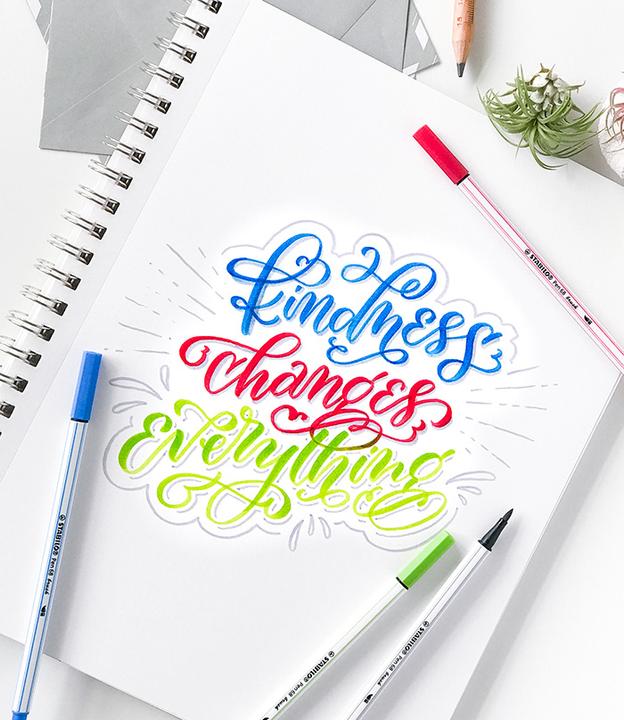 kindness
changes
everything
STABILO® Pen 68 brush
STABILO® Pen 68 brush
STABILO® Pen 68 brush
STABILO® Pen 68 brush